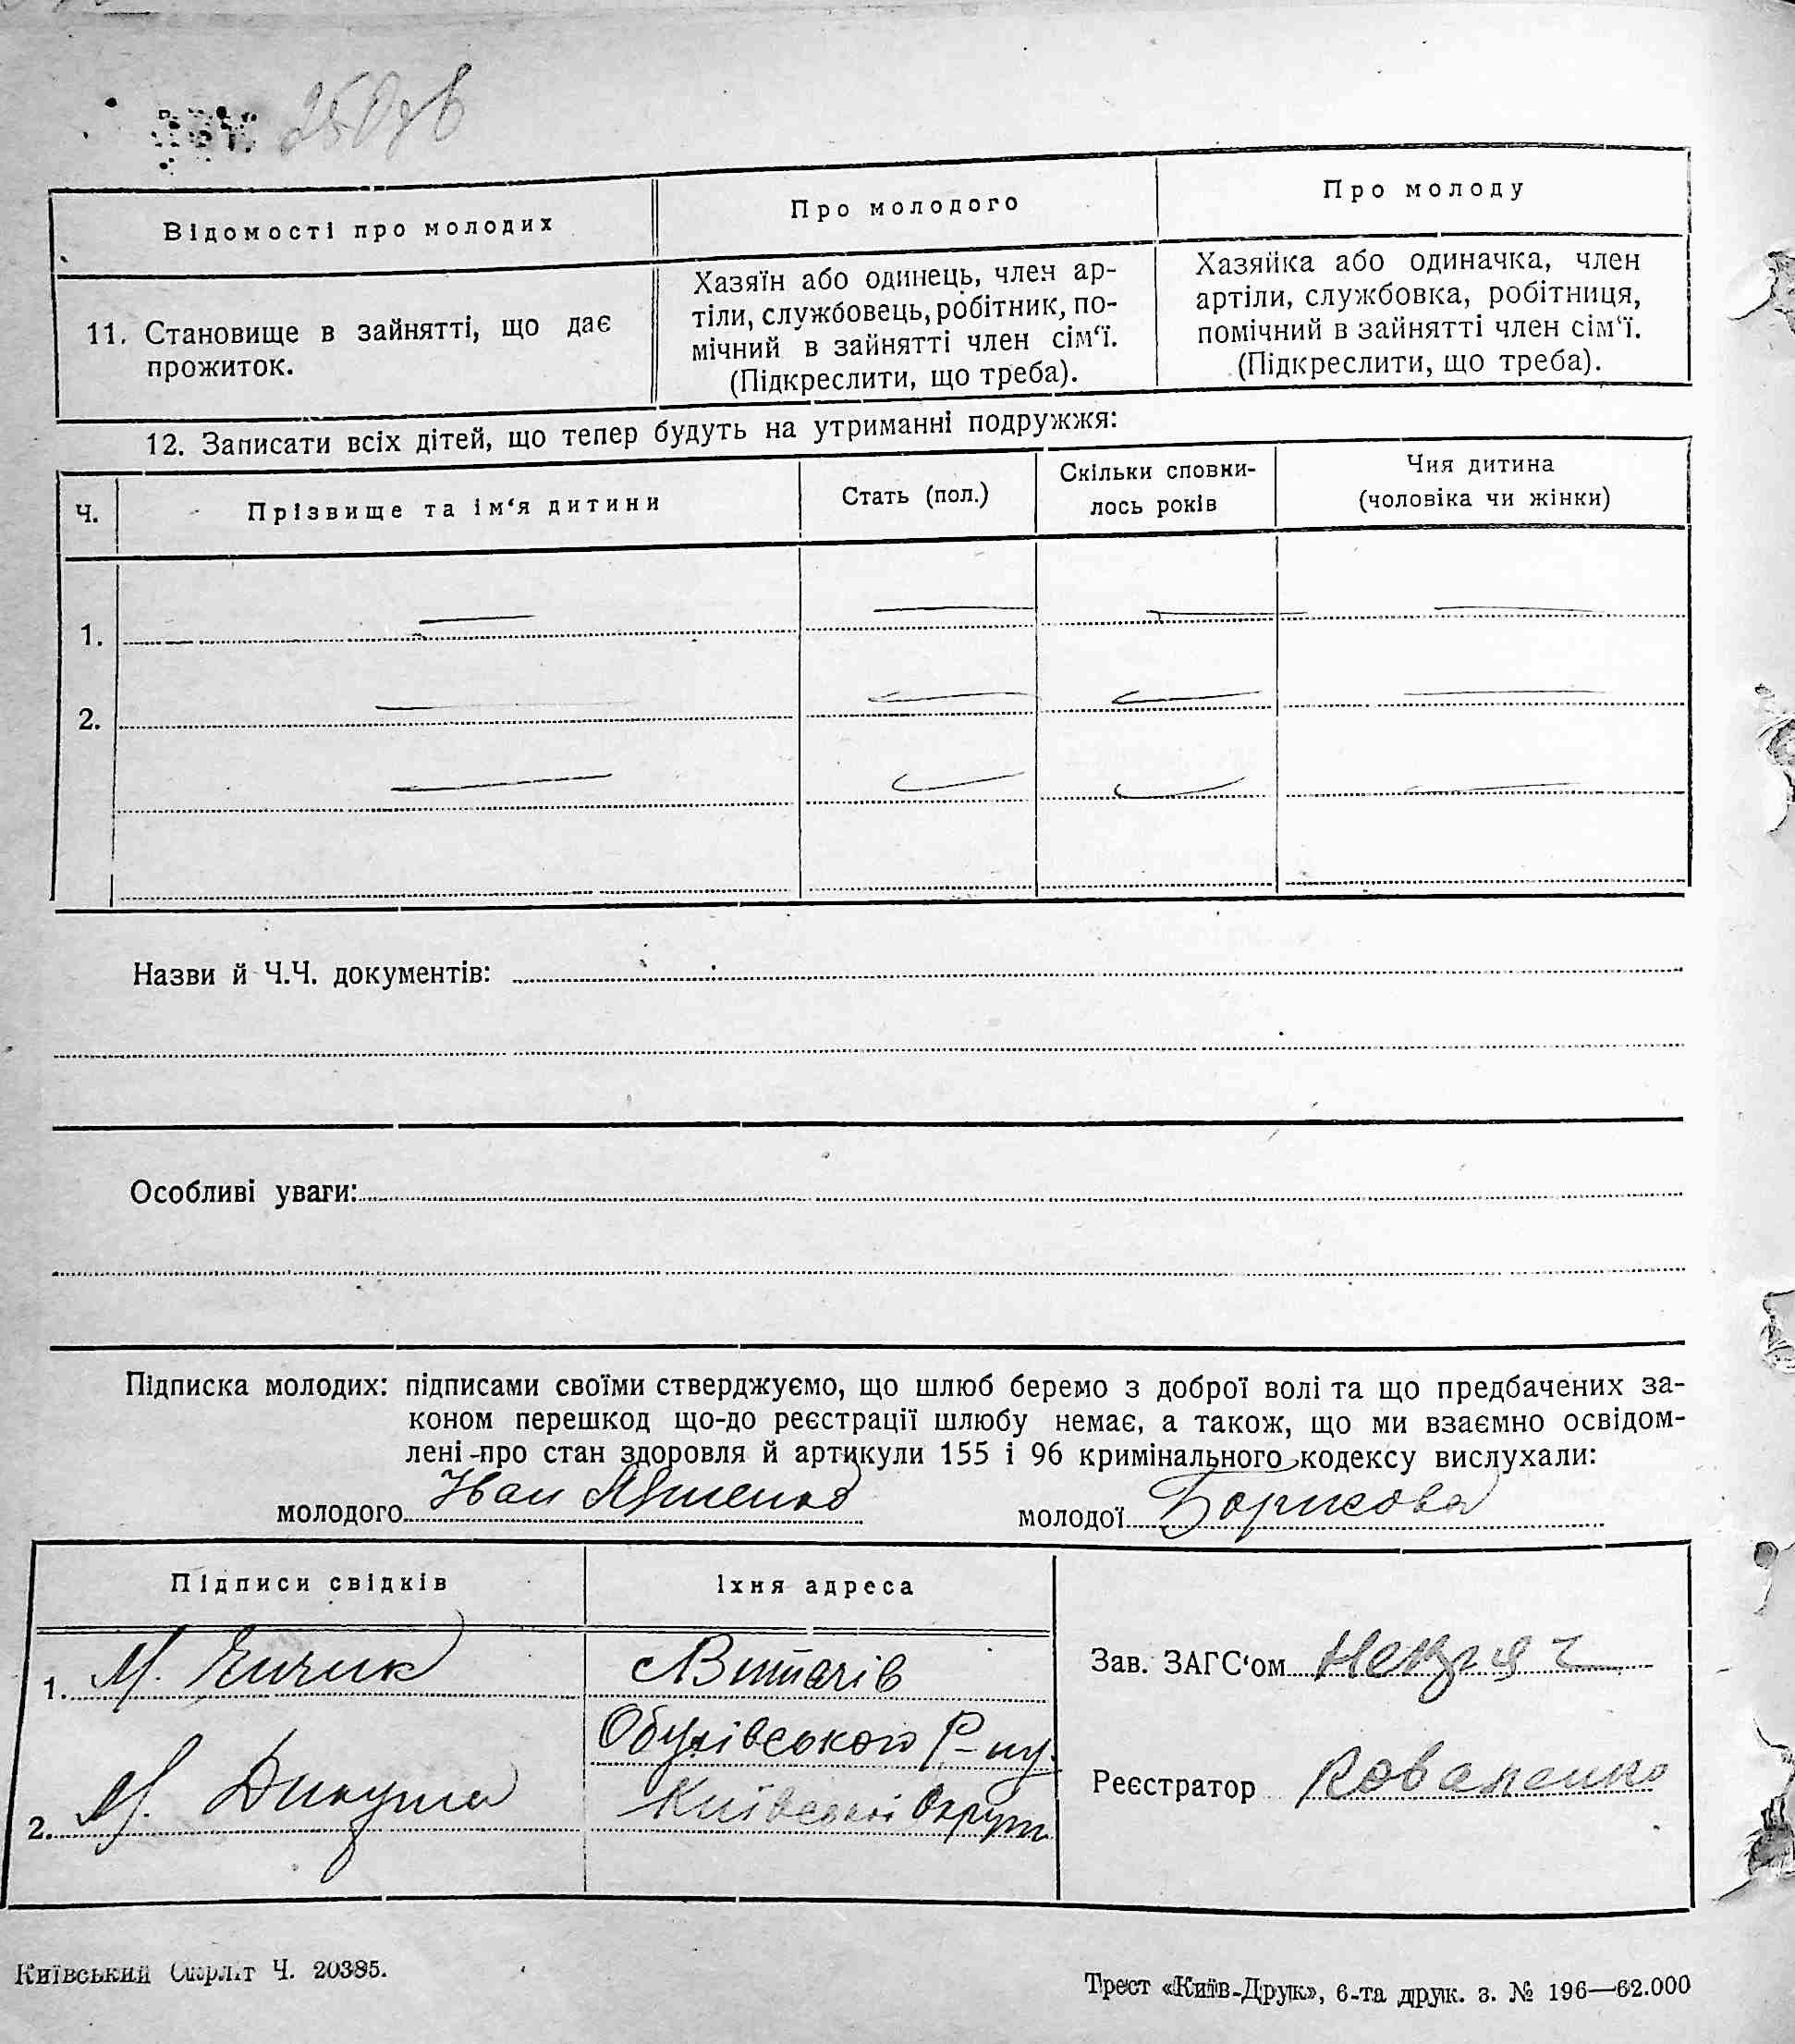 250зв
Відомості про молодих
Про молодого
Про молоду
11. Становище в зайнятті, що дає
прожиток.
Хазяїн або одинець, член ар-
тіли, службовець, робітник, по-
мічний в зайнятті член сім‘ї.
(Підкреслити, що треба).
Хазяйка або одиначка, член
артіли, службовка, робітниця,
помічний в зайнятті член сім‘ї.
(Підкреслити, що треба).
12. Записати всіх дітей, що тепер будуть на утриманні подружжя:
Ч.
Прізвище та ім‘я дитини
Стать (пол.)
Скільки сповни-
лось років
Чия дитина
(чоловіка чи жінки)
1.
2.
Назви й Ч.Ч. документів:
Особливі уваги:
Підписка молодих: підписами своїми стверджуємо, що шлюб беремо з доброї волі та що предбачених за-
коном перешкод що-до реєстрації шлюбу немає, а також, що ми взаємно освідом-
лені про стан здоровля й артикули 155 і 96 кримінального кодексу вислухали:
молодого Иван Яценко молодої Борисова
Підписи свідків
Їхня адреса
1. М. Ячник
с Витачів
Обухівського Р-ну
Київської Округи
2. М. Дикуша
Зав. ЗАГС‘ом Некряч
Реєстратор Коваленко
Київський Окрліт Ч. 20385.
Трест «Київ-Друк», 6-та друк. з. № 196—62.000